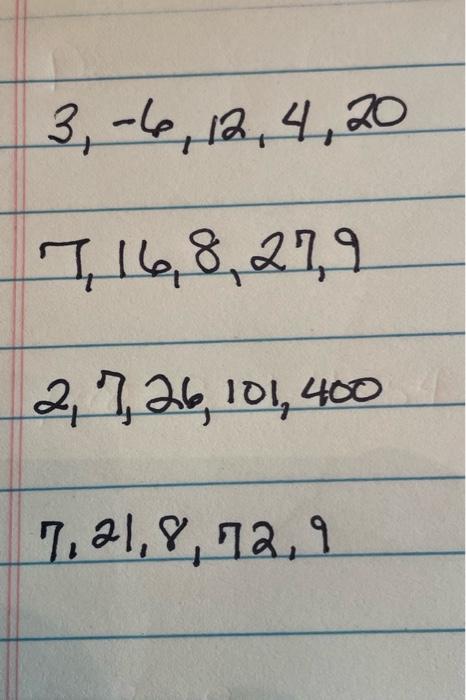 3, -6, 12, 4, 20
7, 16, 8, 27, 9
2, 7, 26, 101, 400
7, 21, 8, 72, 9